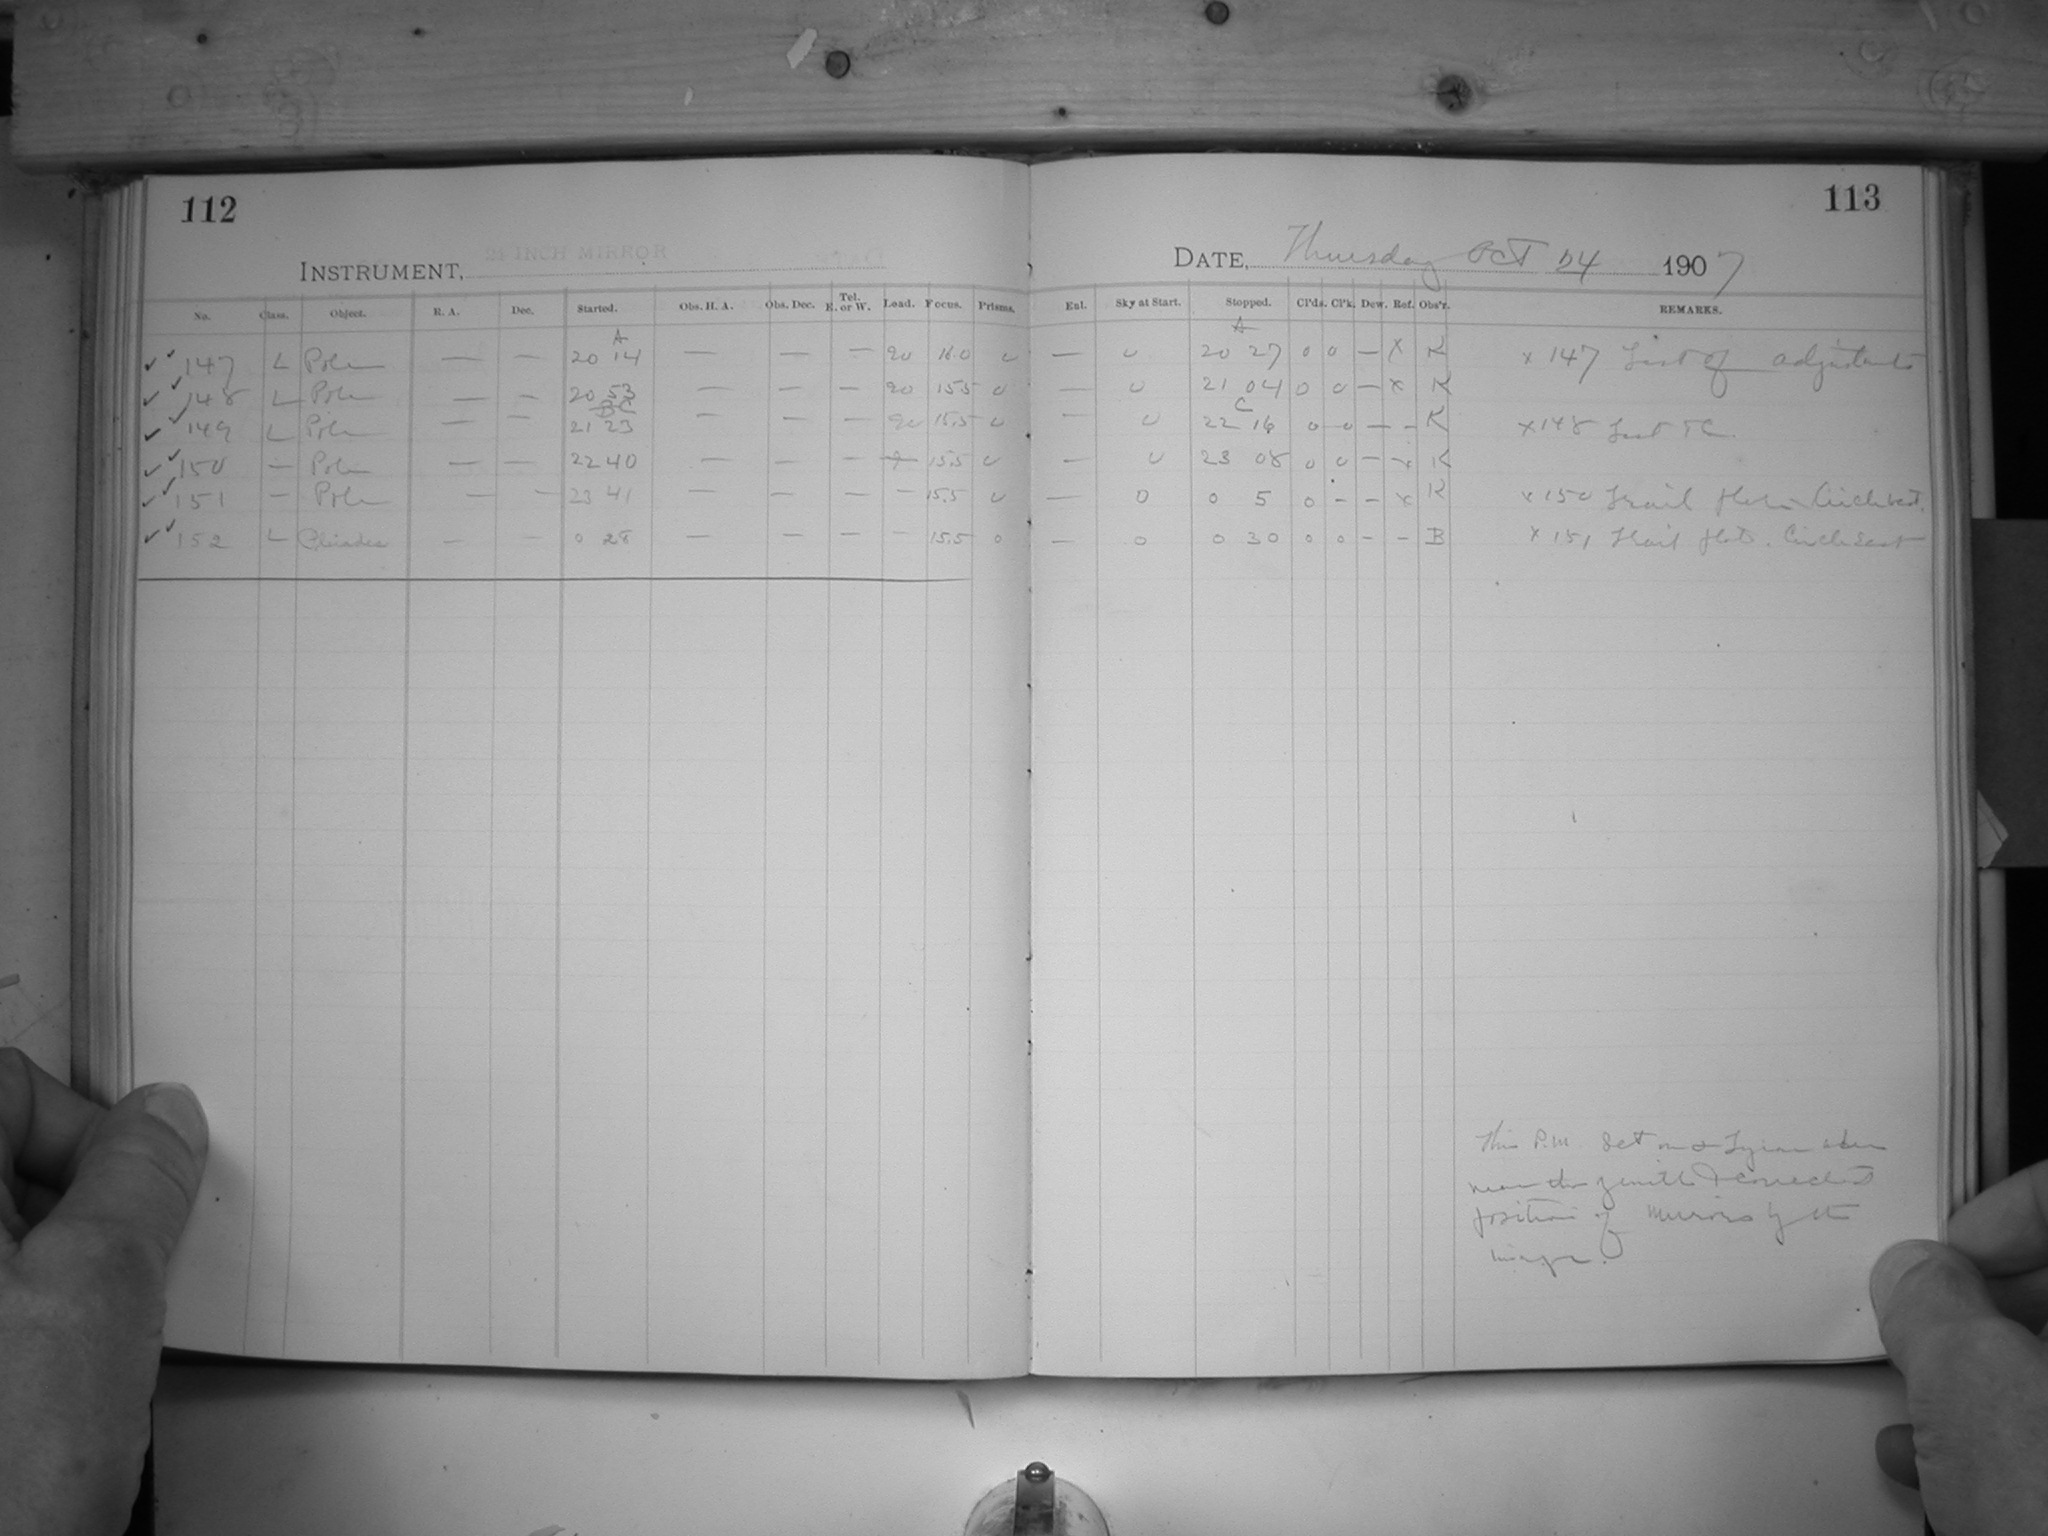 112
113
INSTRUMENT, 24 INCH MIRROR
DATE, Thursday Oct 24 1907
No. Class. Object. R. A. Dec. Started. Obs. H. A. Obs. Dec. Tel. E. or W. Lead. Focus. Prisms. Enl. Sky at Start. Stopped. Cl'ds. Cl'k. Dew. Ref. Obs'r. REMARKS.
A A
✓ ✓ 147 L Pole — — 20 14 — — — 20 16.0 0 — 0 20 27 0 0 — X K x 147 Test of adjustments
✓ ✓ 148 L Pole — — 20 53 — — — 20 15.5 0 — 0 21 04 0 0 — x K
C
✓ ✓ 149 L Pole — — 21 23 — — — 20 15.5 0 — 0 22 16 0 0 — - K x 148 Test
✓ ✓ 150 — Pole — — 22 40 — — — 15.5 0 — 0 23 08 0 0 — x K
✓ ✓ 151 — Pole — — 23 41 — — — — 15.5 0 — 0 0 5 0 - - x K x 150 Trail Circle
✓ ✓ 152 L Pleiades — — 0 28 — — — — 15.5 0 — 0 0 30 0 0 - - B x 151 Trail Circle East
This P.M. Set on α
near the zenith & corrected
position of mirrors by the
image.